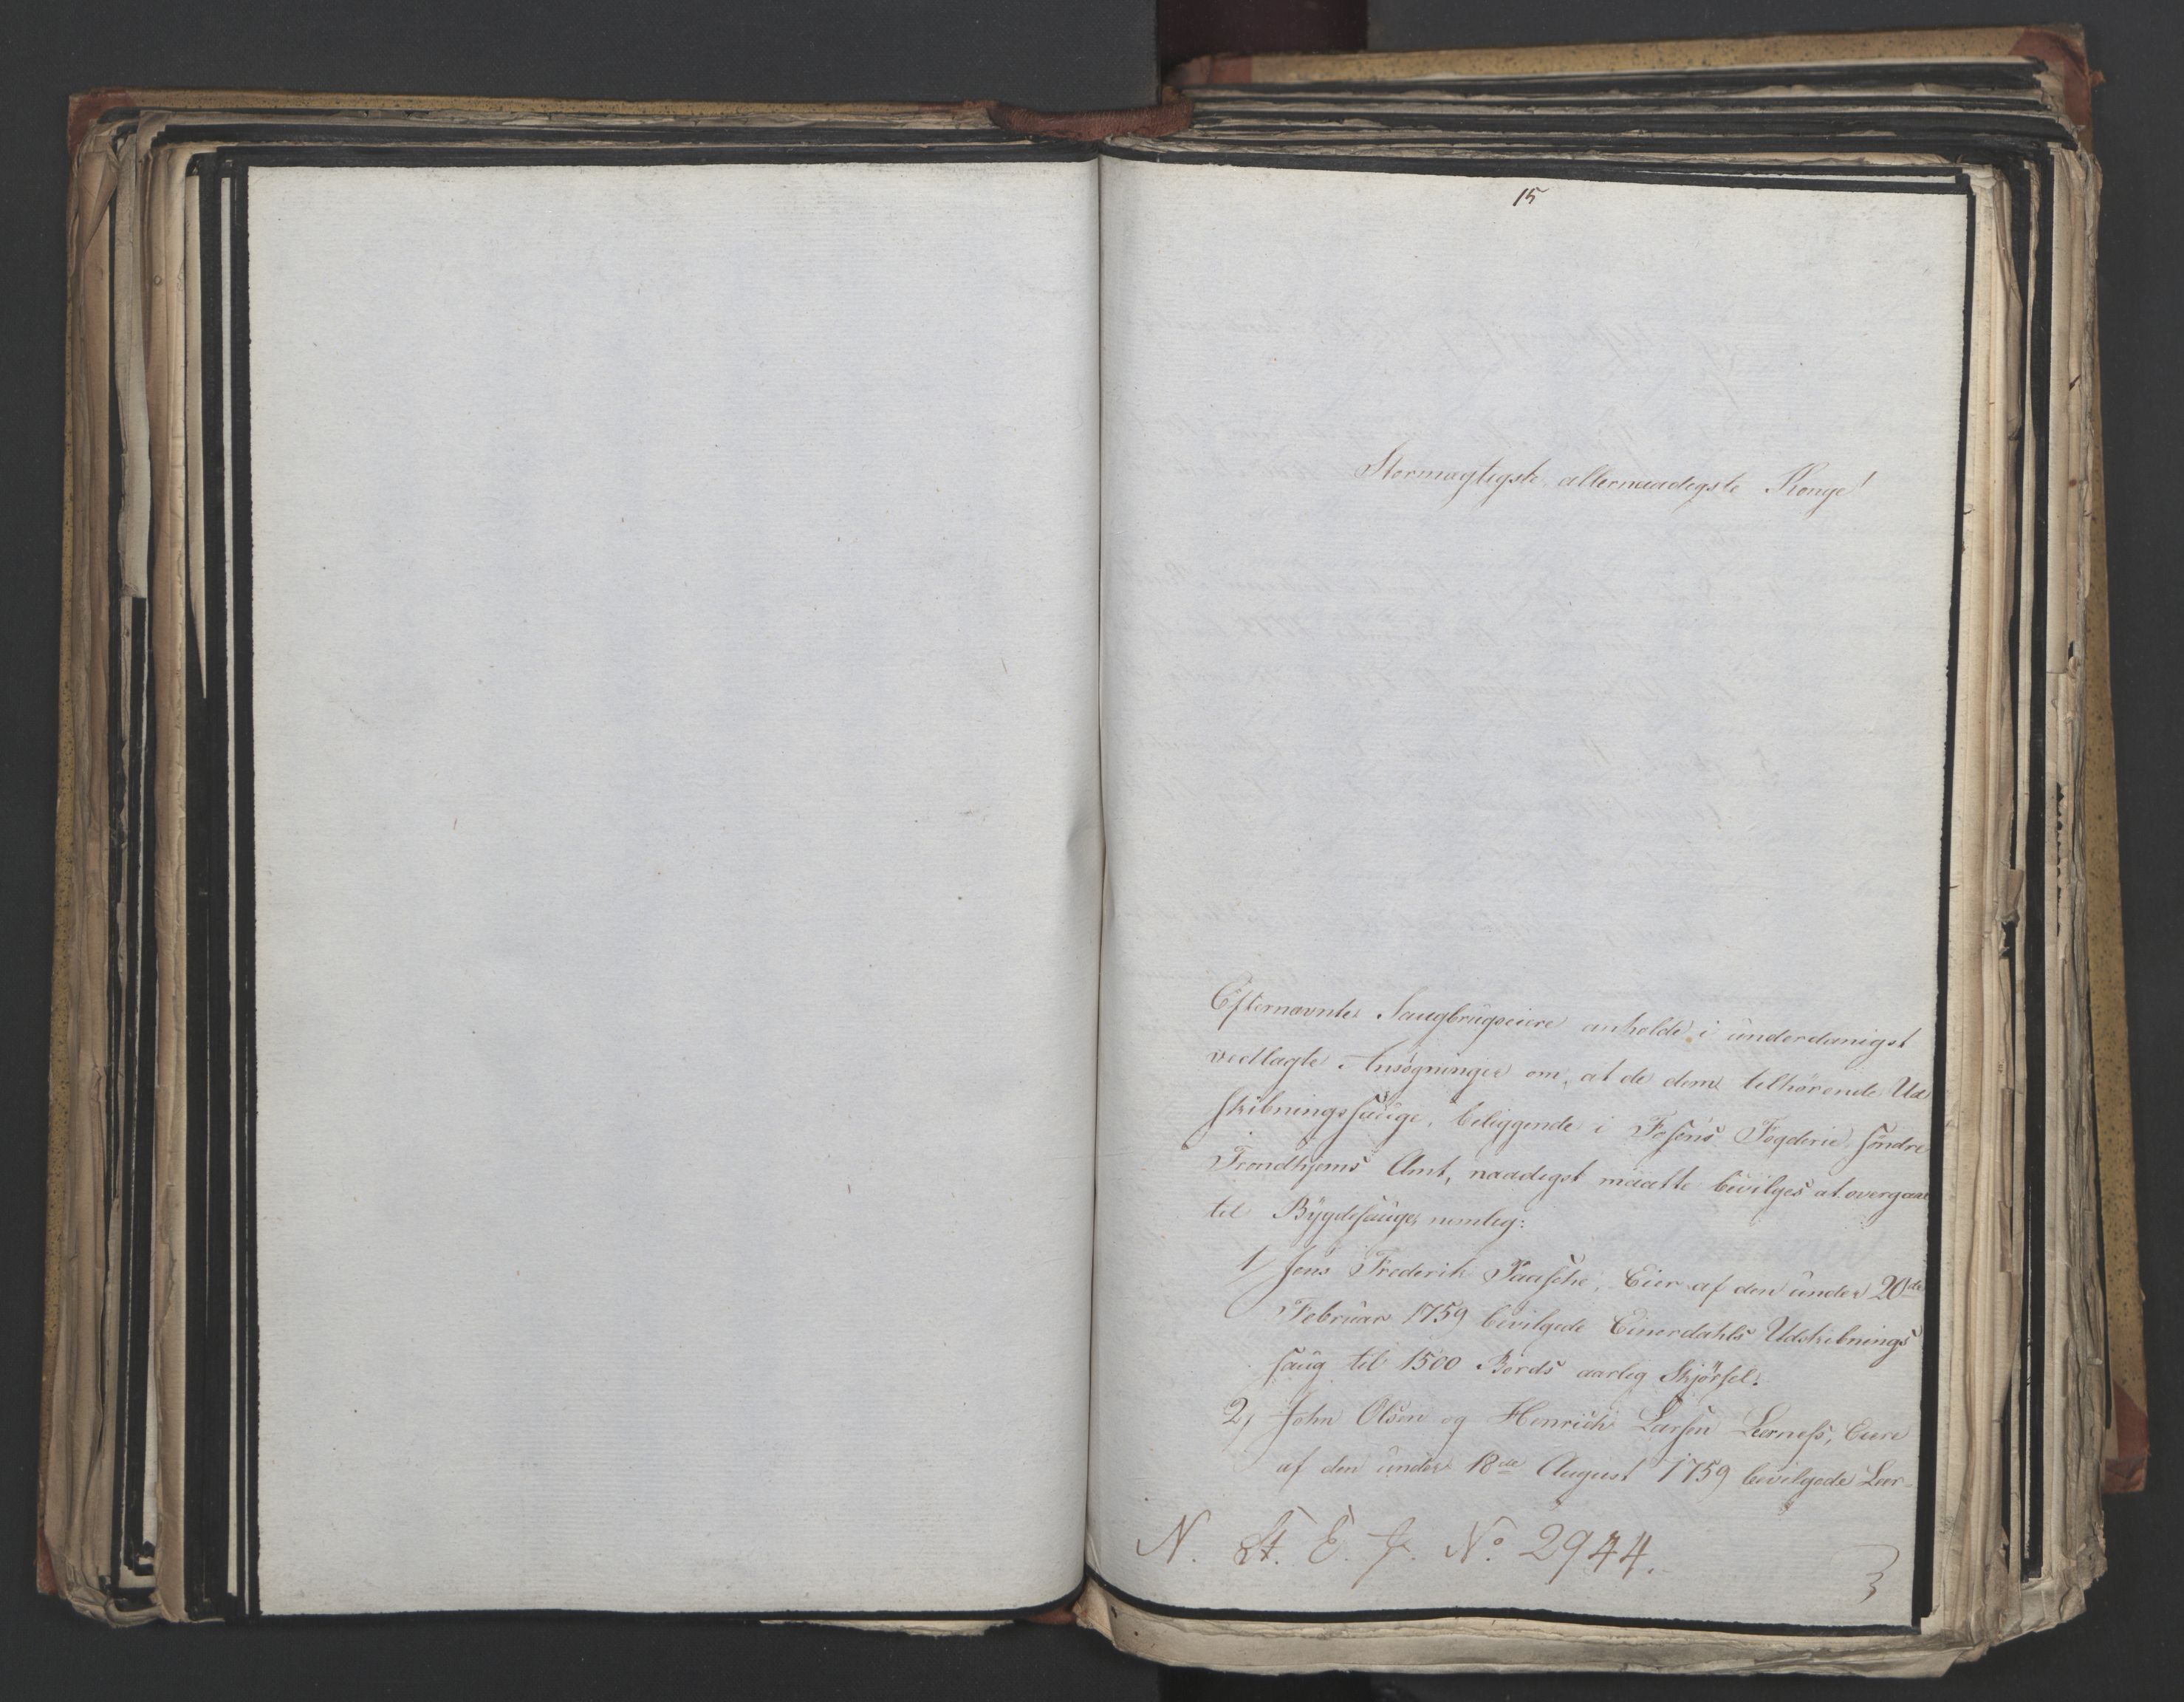 15
Stormægtigste allernaadigste Konge!
Efternævnte Saugbrugseiere anholde i underdanigst
vedlagte Ansøgninger om, at de dem tilhørende Ud
skibningssauge, beliggende i Fosens Fogderie søndre
Trondhjems Amt, naadigst maatte bevilges at overgaae
til Bygdesauge, nemlig:
1, Jens Frederik Paasche, Eier af den under 20de
Februar 1759 bevilgede Einerdahls Udskibnings
saug til 1500 Bords aarlig Skjørsel.
2, John Olsen og Henrich Larsen Leerness, Eiere
af den under 18de August 1759 bevilgede Leer-
N. St. E. J. No. 2944.
3